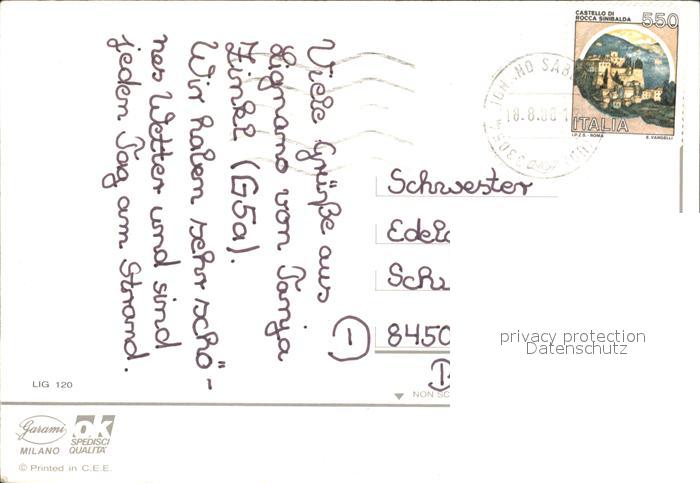 Viele Grüße aus
Lignano von Tanja
Zinkl (G5a).
Wir haben sehr schö-
nes Wetter und sind
jeden Tag am Strand.
CASTELLO DI
ROCCA SINIBALDA
550
ITALIA
I.P.Z.S. - ROMA
E. VANGELLI
NO SAB
18.8.88
Schwester
Edel
Sch
8450
privacy protection
Datenschutz
NON SC
LIG 120
Garami
MILANO
OK
SPEDISCI
QUALITA'
© Printed in C.E.E.